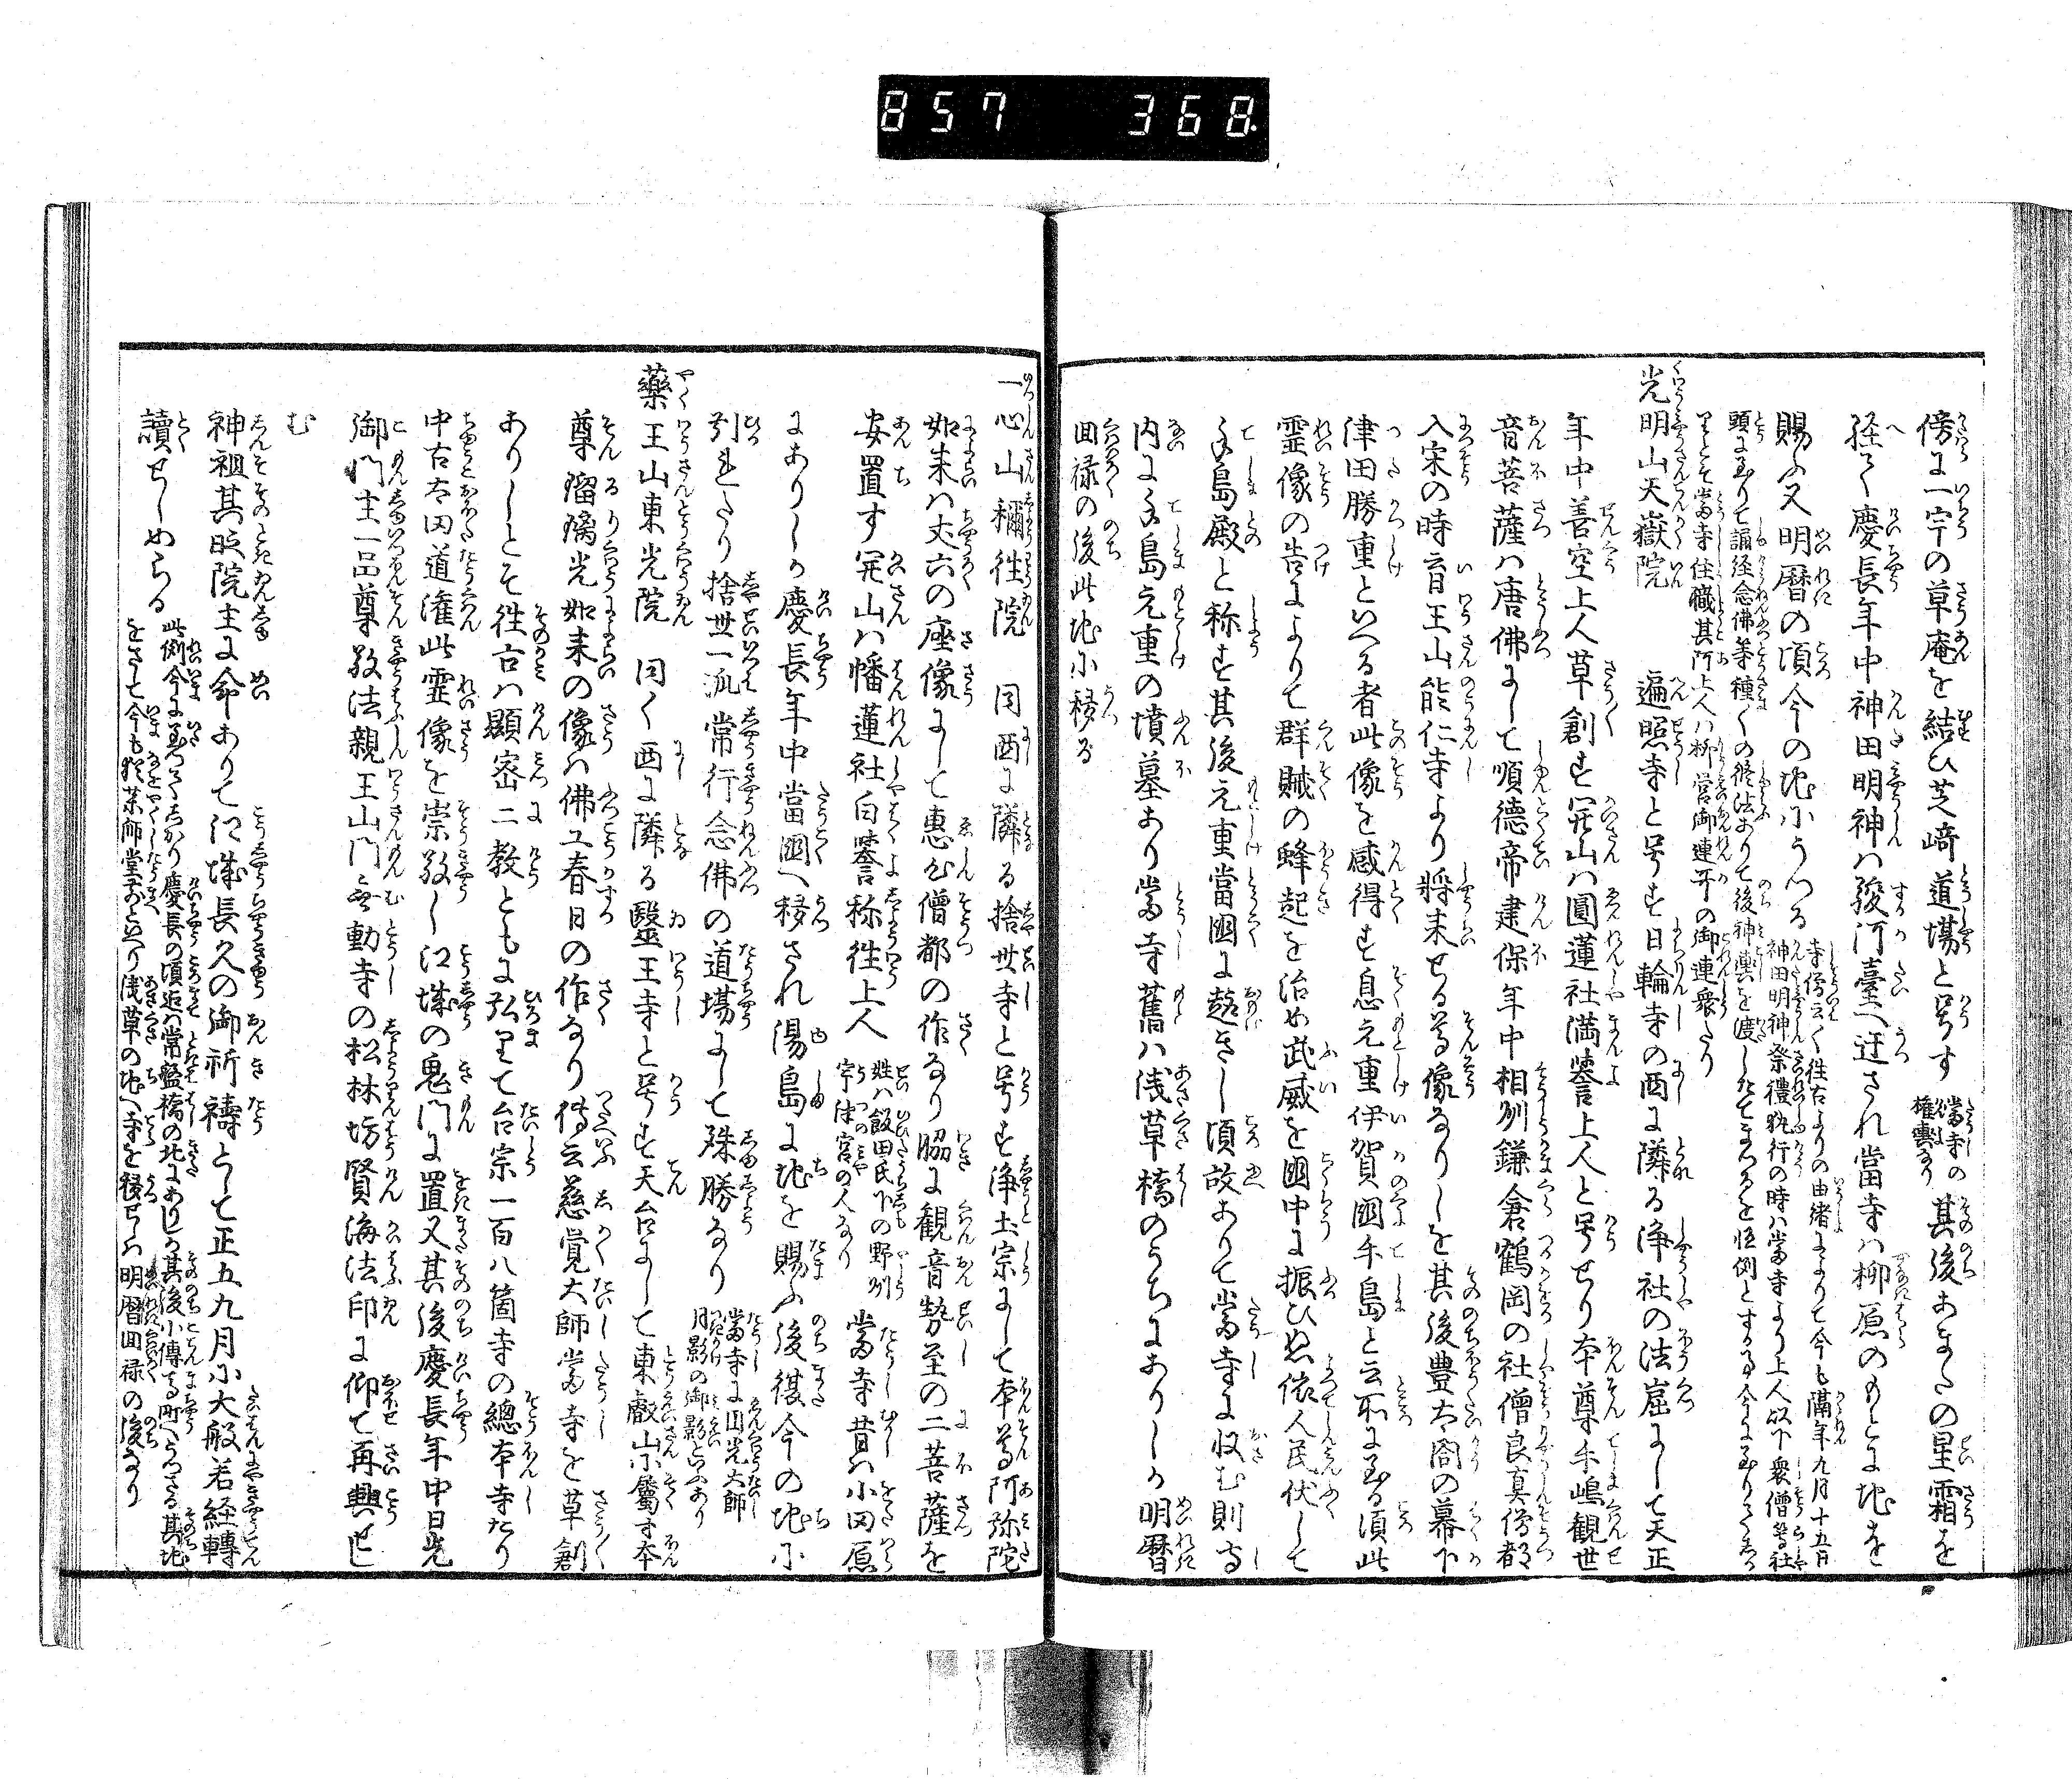 857 368
傍に一宇の草庵を結ひ芝﨑道場と号す 當寺の權輿なり 其後あまたの星霜を
経て慶長年中神田明神ハ駿河臺へ迁され當寺ハ柳原のもとに地を
賜ふ又明暦の頃今の地にうつる 寺僧云く往古よりの由緒によりて今も隔年九月十五日
神田明神祭禮執行の時ハ當寺より上人以下衆僧等社
頭に至りて誦経念佛等種々の修法ありて後神輿を渡したてまつるを恒例とする事今に至りてしかり
當寺住職其阿上人ハ柳営御連哥の御連衆たり
光明山天嶽院 遍照寺と号す日輪寺の西に隣る浄社の法窟にして天正
年中善空上人草創す開山ハ圓蓮社満誉上人と号せり本尊手嶋観世
音菩薩ハ唐佛にして順德帝建保年中相刕鎌倉鶴岡の社僧良真僧都
入宋の時育王山能仁寺より将来せる尊像なりしを其後豊太閤の幕下
津田勝重といへる者此像を感得す息元重伊賀國手島と云所に至る頃此
霊像の告によりて群賊の蜂起を治め武威を國中に振ひぬ依人民伏して
手島殿と称す其後元重當國に趣きし頃故ありて當寺に収む則寺
内に手島元重の墳墓あり當寺舊ハ浅草橋のうちにありしか明暦
回禄の後此地に移る
一心山稱往院 同西に隣る捨世寺と号す浄土宗にして本尊阿弥陀
如来ハ丈六の座像にして惠心僧都の作なり脇に観音勢至の二菩薩を
安置す開山ハ幡蓮社白誉称往上人 姓ハ飯田氏下の野州
宇津宮の人なり 當寺昔ハ小田原
にありしか慶長年中當國へ移され湯島に地を賜ふ後復今の地に
引れたり捨世一派常行念佛の道場にして殊勝なり 當寺に圓光大師
月影の御影といふあり
藥王山東光院 同く西に隣る醫王寺と号す天台にして東叡山に屬す本
尊瑠璃光如来の像ハ佛工春日の作なり傳云慈覚大師當寺を草創
ありしとそ往古ハ顕密二教ともに弘りて台宗一百八箇寺の總本寺たり
中古太田道灌此霊像を崇敬し江城の鬼門に置又其後慶長年中日光
御門主一品尊敬法親王山門無動寺の松林坊賢海法印に仰て再興せし
む
神祖其時院主に命ありて江城長久の御祈禱として正五九月に大般若経轉
讀せしめらる 此例今に至てしかり慶長の頃迄ハ常盤橋の北にありしか其後小傳馬町へうつさる其地
をさして今も猶薬師堂前といへり浅草の地へ寺を移せしハ明暦回禄の後なり